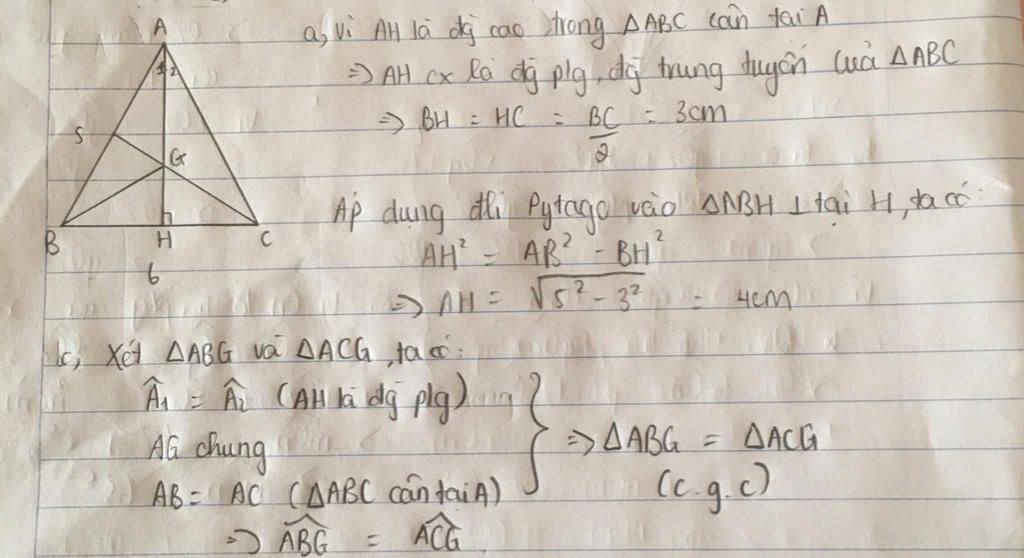 a, Vì AH là đg cao trong ΔABC cân tại A
⇒ AH cx là đg plg, đg trung tuyến của ΔABC
⇒ BH = HC = BC/2 = 3cm
Áp dụng đlí Pytago vào ΔABH ⊥ tại H, ta có:
AH² = AB² - BH²
⇒ AH = √5² - 3² = 4cm
A
1 2
5
G
B
H
C
6
c, Xét ΔABG và ΔACG, ta có:
Â₁ = Â₂ (AH là đg plg)
AG chung
AB = AC (ΔABC cân tại A)
⇒ ΔABG = ΔACG
(c.g.c)
⇒ ABG = ACG